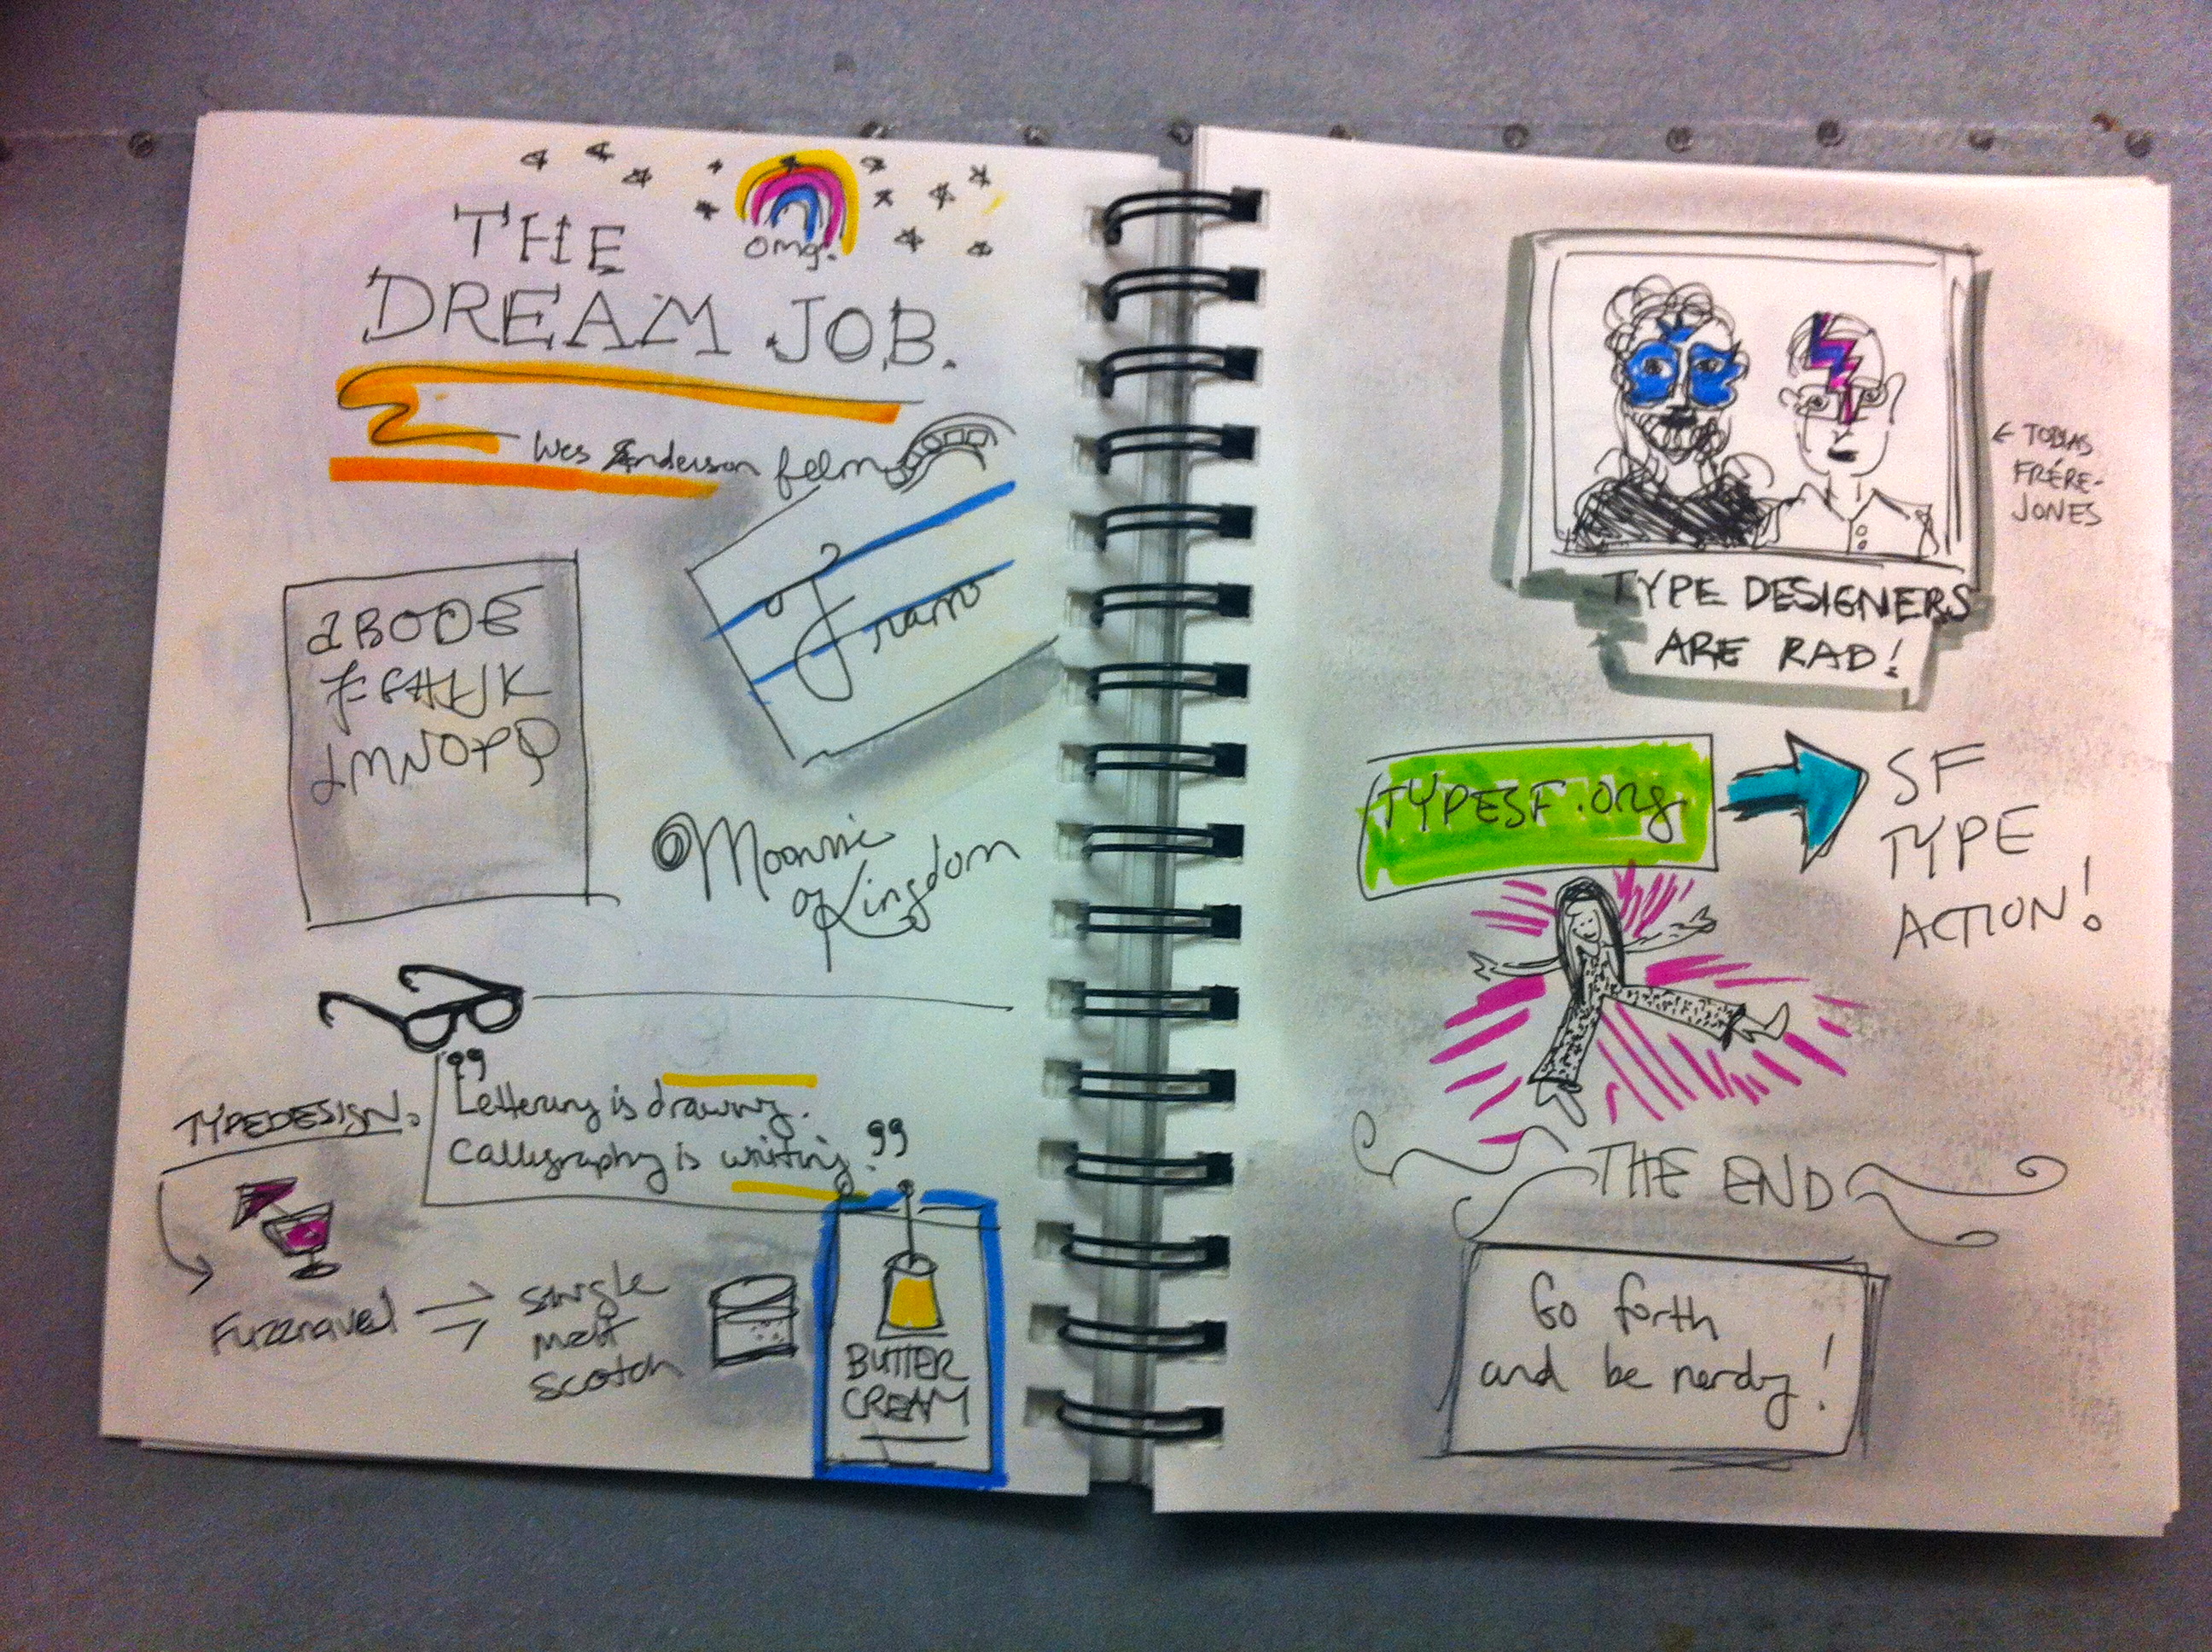 omg!
THE
DREAM JOB.
Wes Anderson film
ABCDE
FGHIJK
LMNOPQ
Tram
Moonrise
Kingdom
TYPEDESIGN.
"Lettering is drawing.
Calligraphy is writing."
Fuzznavel
single
malt
scotch
BUTTER
CREAM
← TOBIAS
FRÉRE-
JONES
TYPE DESIGNERS
ARE RAD!
TYPESF.org
SF
TYPE
ACTION!
THE END
Go forth
and be nerdy!